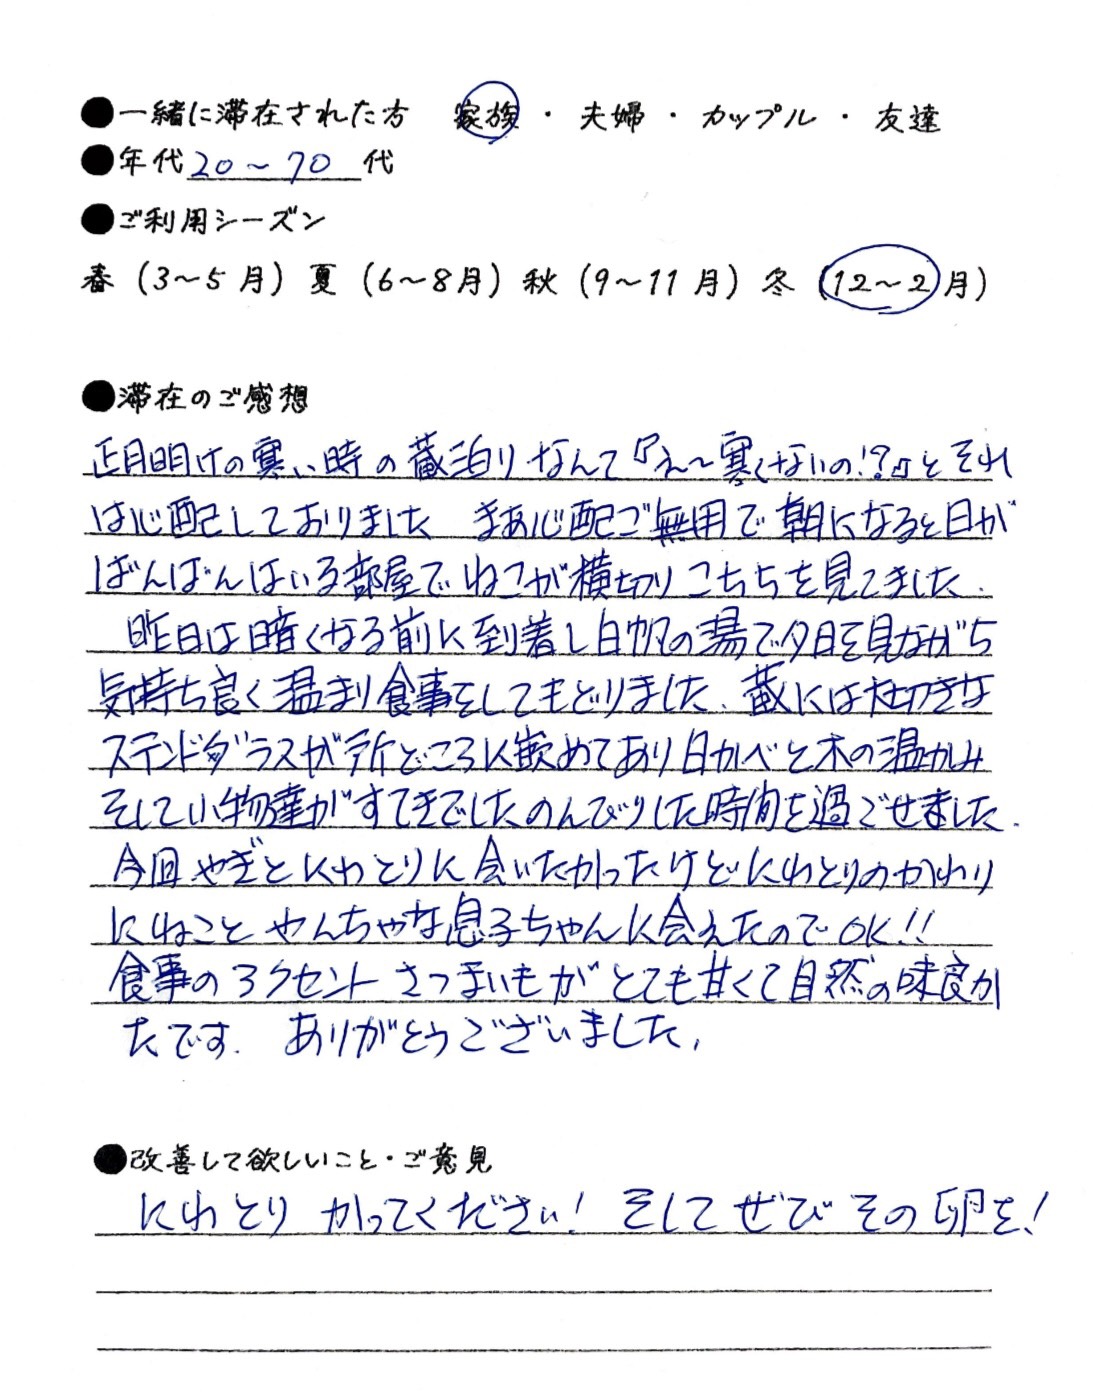 ●一緒に滞在された方 家族・夫婦・カップル・友達
●年代20～70代
●ご利用シーズン
春(3～5月)夏(6～8月)秋(9～11月)冬(12～2月)
●滞在のご感想
正月明けの寒い時の蔵泊りなんて『え～寒くないの!?』とそれ
は心配しておりました まあ心配ご無用で朝になると日が
ばんばんはいる部屋でねこが横切りこちらを見てました.
昨日は暗くなる前に到着し白帆の湯で夕日を見ながら
気持ち良く温まり食事をしてもどりました、蔵には大切きな
ステンドグラスが所どころに嵌めてあり白かべと木の温かみ
そしてい物達がすてきでしたのんびりした時間を過ごせました.
今回やぎとにわとりに会いたかったけどにわとりのかわり
にねことやんちゃな息子ちゃんに会えたのでOK!!
食事のアクセントさつまいもがとても甘くて自然の味良か
たです. ありがとうございました.
●改善して欲しいこと・ご意見
にわとりかってください! そしてぜひその卵を!